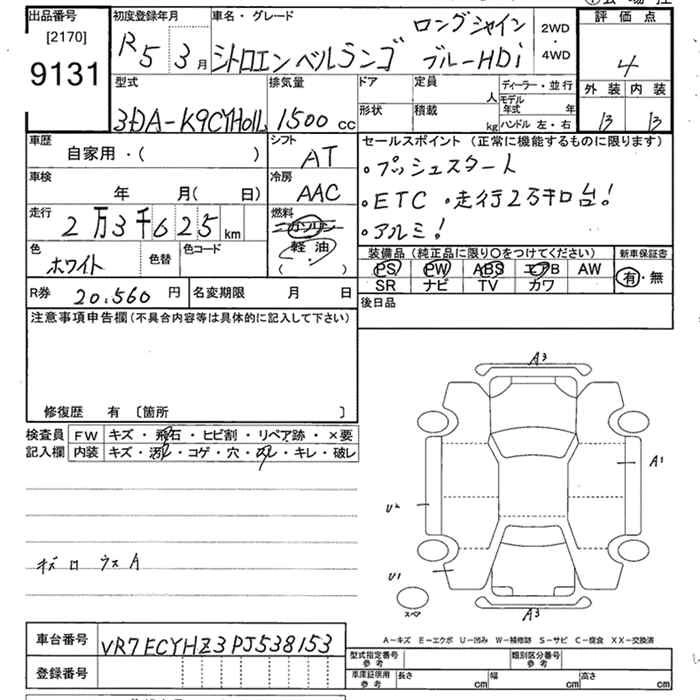 出品番号
[2170]
9131
初度登録年月
R5年3月
車名・グレード
シトロエン ベルランゴ
ロングシャイン
ブルーHDi
2WD
・
4WD
評価点
4
外装 内装
B B
型式
3DA-K9CYH01L
排気量
1500 cc
ドア
形状
定員 人
積載 kg
ディーラー・並行
モデル年式 年
ハンドル 左・右
車歴
自家用・( )
シフト
AT
車検
年 月( 日)
冷房
AAC
走行
2万3千625 km
燃料
ガソリン
軽油
( )
色
ホワイト
色替
色コード
セールスポイント(正常に機能するものに限ります)
・プッシュスタート
・ETC ・走行2万キロ台!
・アルミ!
装備品(純正品に限り〇をつけてください)
新車保証書
PS PW ABS エアB AW
SR ナビ TV カワ
有・無
R券 20.560 円
名変期限 月 日
後日品
注意事項申告欄(不具合内容等は具体的に記入して下さい)
修復歴 有 〔箇所 〕
検査員
記入欄
FW キズ・飛石・ヒビ割・リペア跡・×要
内装 キズ・汚・コゲ・穴・・キレ・破レ
ウスA
A3
A1
U2
U1
スペア
A3
A-キズ E-エクボ U-凹み W-補修跡 S-サビ C-腐食 XX-交換済
車台番号
VR7ECYHZ3PJ538153
登録番号
型式指定番号
参考
類別区分番号
参考
車庫証明用
参考
長さ cm
幅 cm
高さ cm